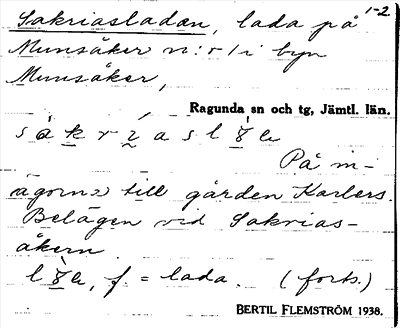 Sakriasladan, lada på 1-2
Munsåker n:o 1 i byn
Munsåker,
Ragunda sn och tg, Jämtl. län.
På in-
ägorna till gården Karlers.
Belägen vid Sakrias-
åkern.
f. = lada. (forts.)
BERTIL FLEMSTRÖM 1938.